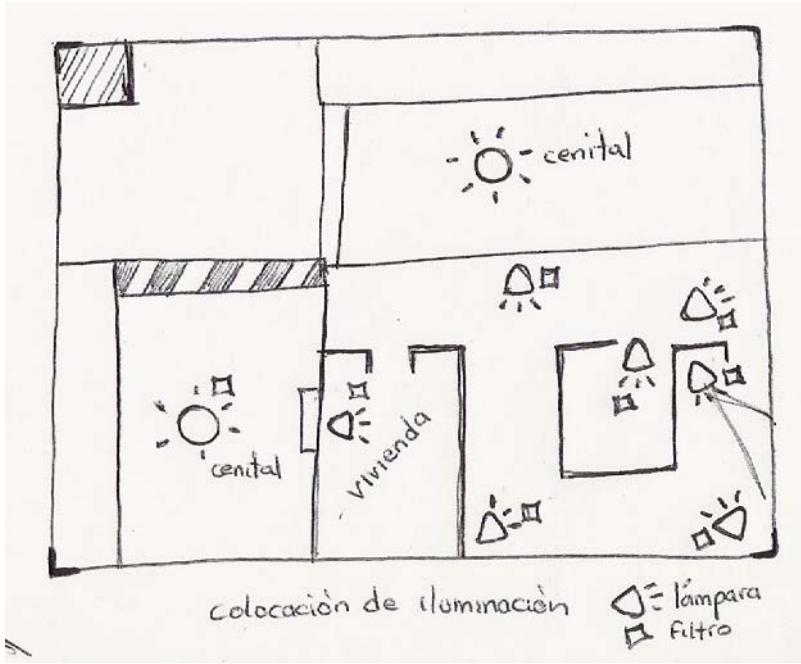 cenital
cenital
vivienda
colocación de iluminación
lámpara
filtro